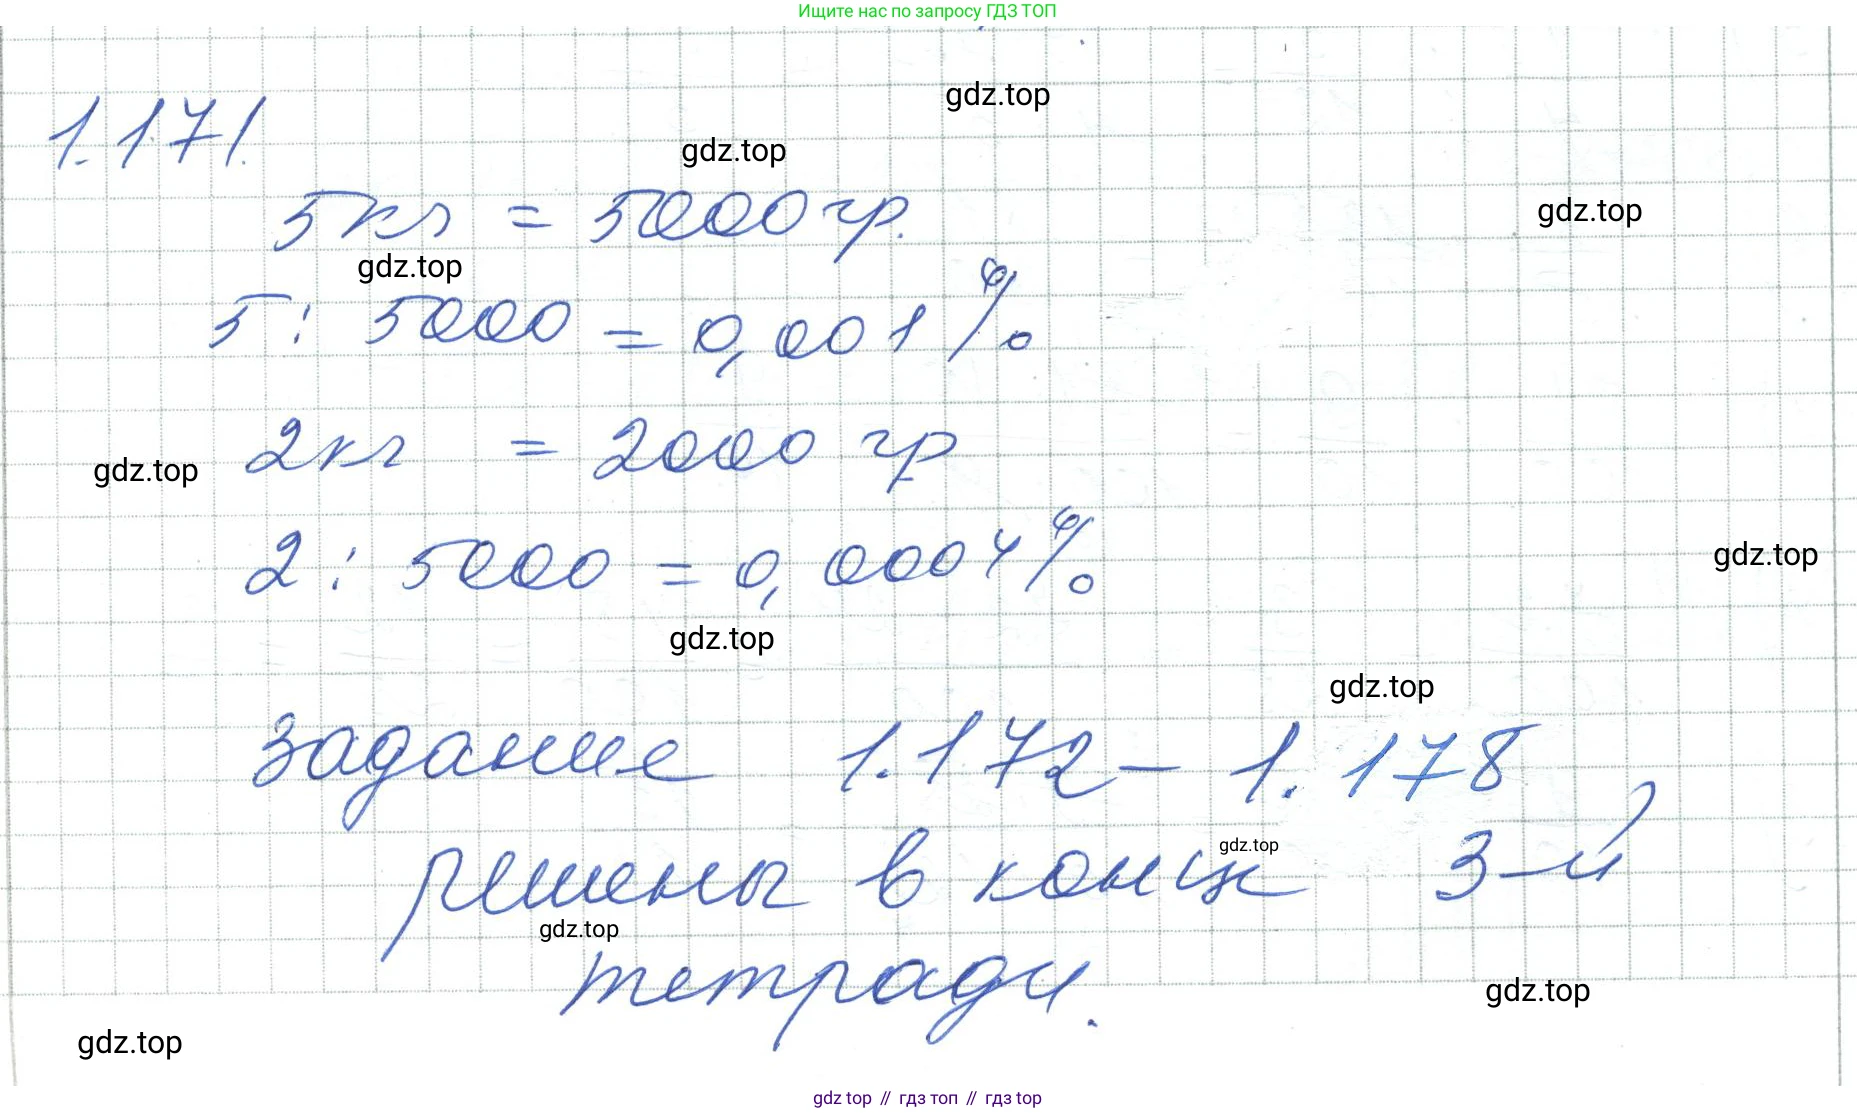 Ищите нас по запросу ГДЗ ТОП
gdz.top
1.171.
gdz.top
5кг = 5000 гр.
gdz.top
gdz.top
5 : 5000 = 0,001 %
2кг = 2000 гр
gdz.top
2 : 5000 = 0,0004 %
gdz.top
gdz.top
gdz.top
задание 1.172 – 1.178
gdz.top
решены в конце 3-й
gdz.top
тетради.
gdz.top
gdz.top
gdz top // гдз топ // гдз top